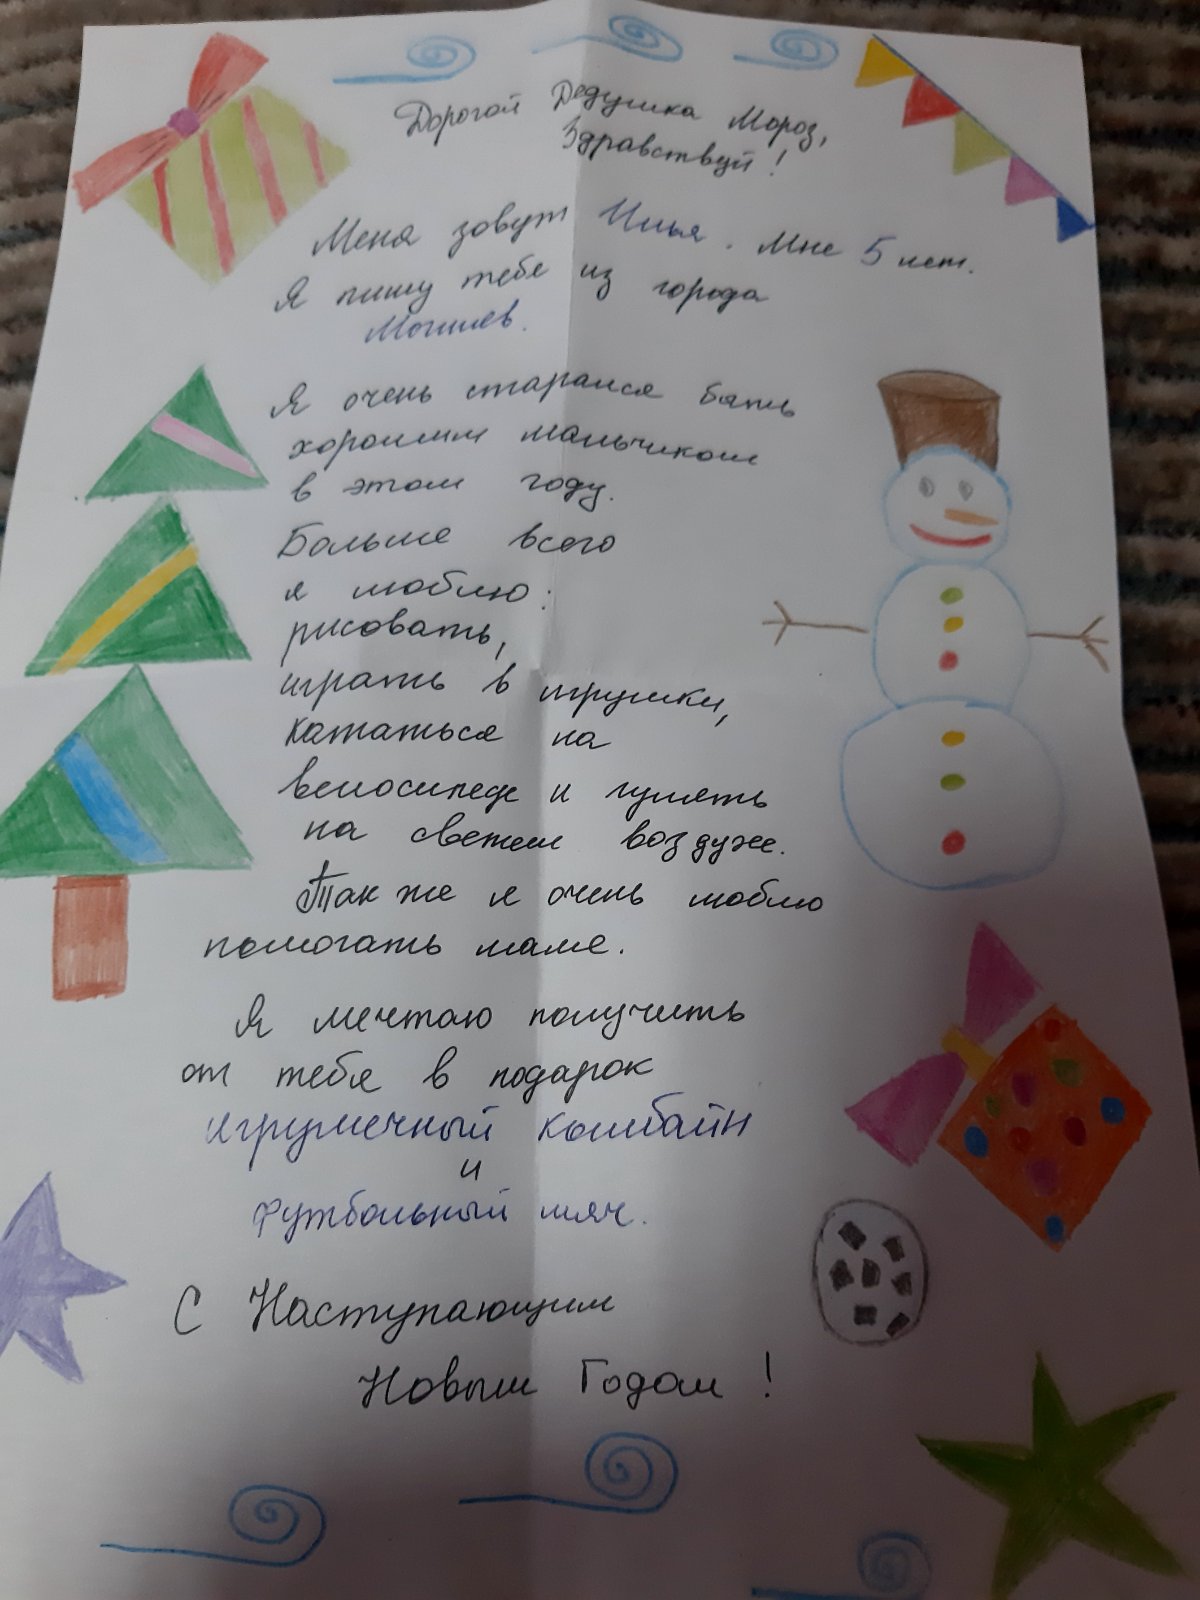 Дорогой Дедушка Мороз,
Здравствуй!
Меня зовут Илья. Мне 5 лет.
Я пишу тебе из города
Могилев.
Я очень старался быть
хорошим мальчиком
в этом году.
Больше всего
я люблю:
рисовать,
играть в игрушки,
кататься на
велосипеде и гулять
на свежем воздухе.
Так же я очень люблю
помогать маме.
Я мечтаю получить
от тебя в подарок
игрушечный комбайн
и
футбольный мяч.
С Наступающим
Новым Годом!